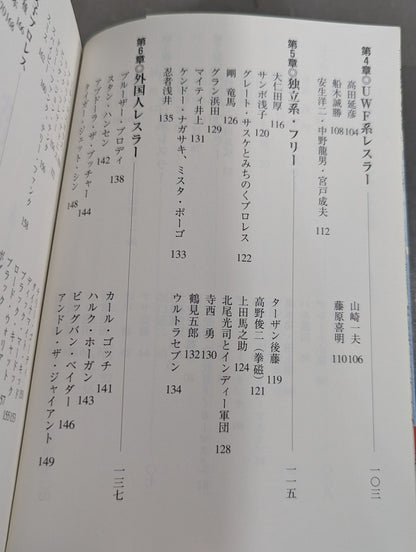 第4章◎UWF系レスラー 一〇三
高田延彦 104 山崎一夫 106
船木誠勝 108 藤原喜明 110
安生洋二・中野龍男・宮戸成夫 112
第5章◎独立系・フリー 一一五
大仁田厚 116 ターザン後藤 119
サンボ浅子 120 高野俊二(拳磁) 121
グレート・サスケとみちのくプロレス 122 上田馬之助 124
剛竜馬 126 北尾光司とインディー軍団 128
グラン浜田 129 寺西勇 130
マイティ井上 131 鶴見五郎 132
ケンドー・ナガサキ、ミスタ・ポーゴ 133
忍者浅井 135 ウルトラセブン 134
第6章◎外国人レスラー 一三七
ブルーザー・ブロディ 138 カール・ゴッチ 141
スタン・ハンセン 142 ハルク・ホーガン 143
アブドーラ・ザ・ブッチャー 144 ビッグバン・ベイダー 146
タイガー・ジェット・シン 148 アンドレ・ザ・ジャイアント 149